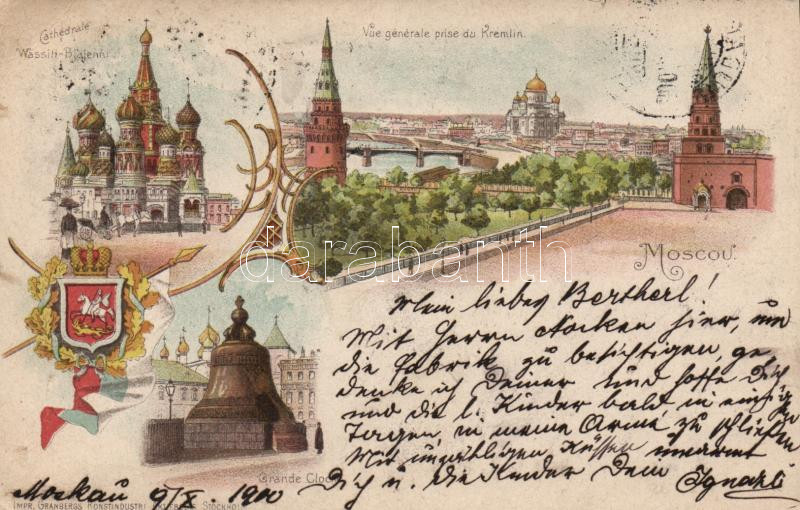 Cathédrale
Wassili-Blajenni.
Vue générale prise du Kremlin.
Moscou.
darabanth.com
Mein lieber Bertherl!
Mit Herrn Nocken hier, um
die Fabrik zu besichtigen, ge
denke ich Deiner und hoffe Dich
und die l. Kinder bald in einigen
Tagen, in meine Arme zu schließen
Mit Küssen umarmt
Dich u. die Kinder Dein Ignazl
Grande Cloche
Moskau 9/X. 1900
IMPR. GRANBERGS KONSTINDUSTRI STOCKHOLM